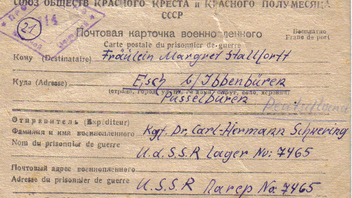 СОЮЗ ОБЩЕСТВ КРАСНОГО КРЕСТА и КРАСНОГО ПОЛУМЕСЯЦА
СССР
21
14
Почтовая карточка военнопленного
Бесплатно
Carte postale du prisonnier de guerre
Franc de port
Кому (Destinataire) Fräulein Margret Stallfortt
Куда (Adresse) Esch b/Ibbenbüren
Püsselbüren
Отправитель (Expéditeur)
Фамилия и имя военнопленного Kgf. Dr. Carl-Hermann Schwering
Nom du prisonnier de guerre U.d.S.S.R Lager No: 7465
Почтовый адрес военнопленного
Adresse du prisonnier de guerre U.S.S.R Лагер No: 7465